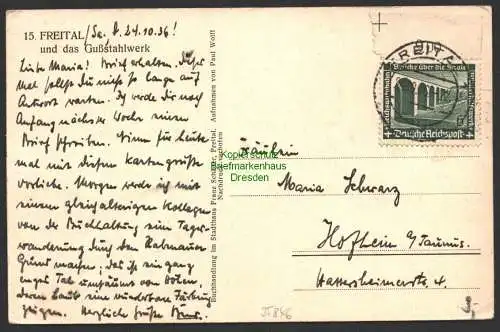 15. FREITAL /Sa. d. 24.10.36!
und das Gußstahlwerk
Liebe Maria! Brief erhalten. Dieses
Mal sollst Du nicht so lange auf
Antwort warten. Ich werde Dir noch
Anfang nächster Woche einen
Brief schreiben. Nimm für heute
mal mit diesen Kartengrüße
vorlieb. Morgen werde ich mit
einem gleichaltrigen Kollegen
von der Buchhaltung eine Tages-
wanderung durch den Rabenauer
Grund machen. Das ist ein ganz
enges Tal umsäumt von Höhen,
deren Laub eine wunderbare Färbung
zeigen. Herzliche Grüße
Buchhandlung im Stadthaus Franz Freital. Aufnahmen von Paul Wolff
Nachdruck verboten
FREITAL
Brücke über die Saale
Reichsautobahn
6
Deutsche Reichspost
Kopierschutz
Briefmarkenhaus
Dresden
Fräulein
Maria Schwarz
Hofheim i/Taunus.
Hattersheimerstr. 4.
35846
3,-